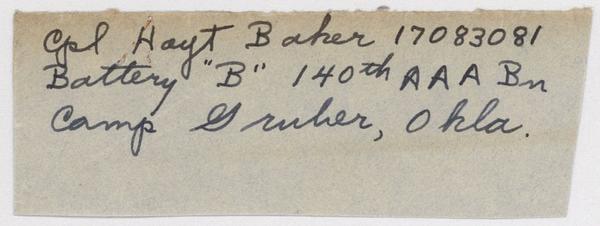 Cpl Hoyt Baker 17083081
Battery "B" 140th AAA Bn
Camp Gruber, Okla.